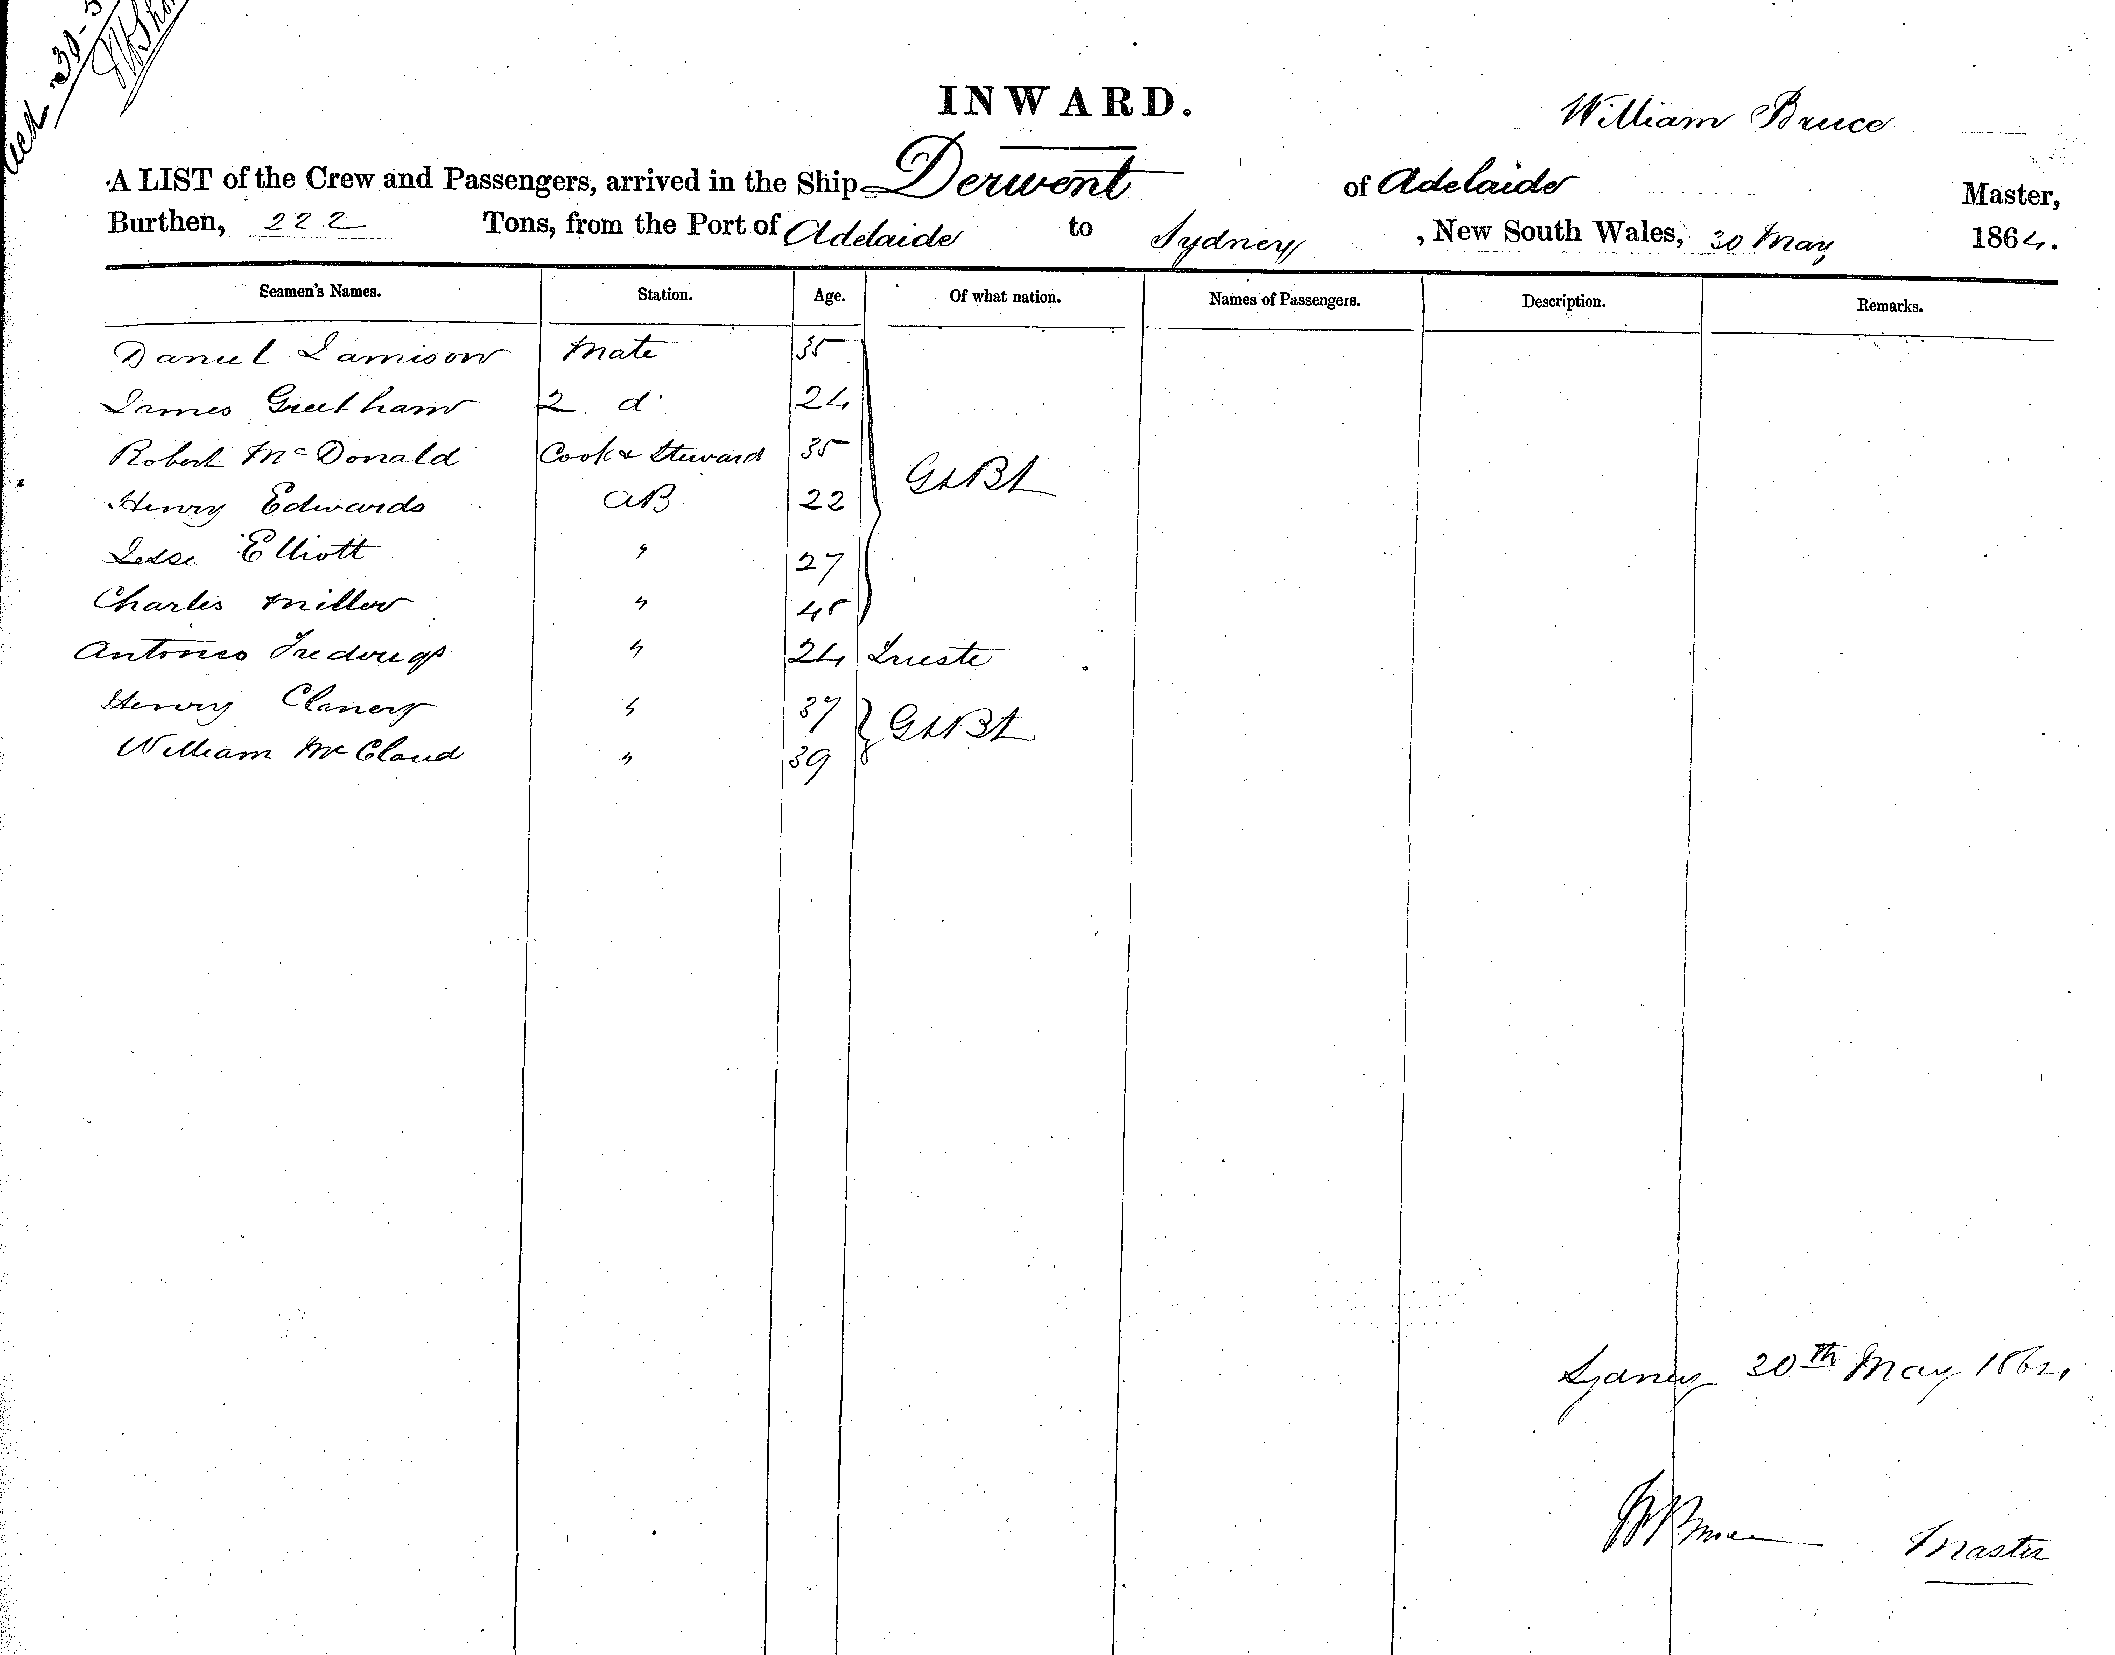 30-5
INWARD.
William Bruce
A LIST of the Crew and Passengers, arrived in the Ship Derwent of Adelaide Master,
Burthen, 222 Tons, from the Port of Adelaide to Sydney, New South Wales, 30 May 1864.
Seamen's Names. Station. Age. Of what nation. Names of Passengers. Description. Remarks.
Daniel Jamison Mate 35
James Greetham 2 do 24
Robert McDonald Cook & Steward 35
Gt Bt
Henry Edwards AB 22
Jesse Elliott " 27
Charles Miller " 45
Antonio " 24 Trieste
Henry Clanery " 37
Gt Bt
William McCloud " 39
Sydney 30th May 1864
W Bruce Master